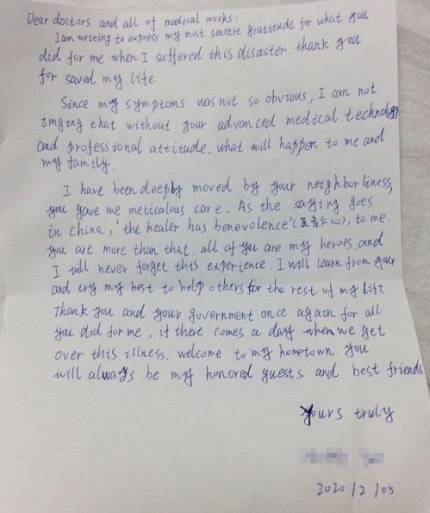 Dear doctors and all of medical works:
I am writing to express my most sincere gratitude for what you
did for me when I suffered this disaster. thank you
for saved my life.
Since my symptoms was not so obvious, I can not
imging that without your advanced medical technology
and professional attitude, what will happen to me and
my family.
I have been deeply moved by your neighborliness,
you gave me meticalous care. As the saying goes
in china, 'the healer has benevolence' (医者仁心), to me.
you are more than that. all of you are my heroes, and
I will never forget this experience. I will learn from your
and try my best to help others for the rest of my life.
Thank you and your government once again for all
you did for me, if there comes a day when we get
over this illness. welcome to my hometown. you
will always be my honored guests and best friends
yours truly
2020/2/05